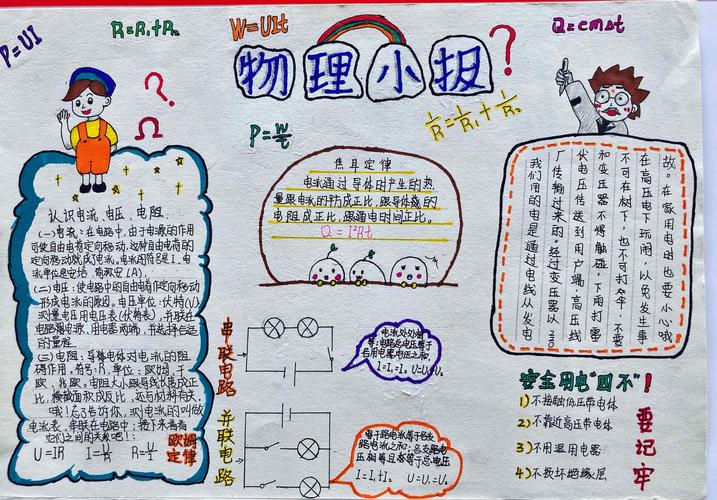 P=UI
R=R₁+R₂
W=UIt
Q=cmΔt
物理小报
?
?
Ω
P=W/t
1/R=1/R₁+1/R₂
认识电流、电压、电阻
(一)电流:在电路中,由于电源的作用
可使自由电荷定向移动,这种自由电荷的
定向移动就成了电流。电流的符号是I。电
流单位是安培,简称安(A)。
(二)电压:使电路中的自由电荷定向移动
形成电流的原因。电压单位:伏特(V)
测量电压用电压表(伏特表),并联在
电路 用电器两端,并选择合适
的量程。
(三)电阻:导体对电流的阻
碍作用,符号:R,单位:欧姆,千
欧,兆欧,电阻大小跟导线长度成正
比,横截面积成反比,还与材料有关。
哦!忘了告诉你,测电流的叫做
电流表,串联在电路中;接下来看看
它们之间的关系吧!:
U=IR I=U/R R=U/I
欧姆
定律
焦耳定律
电流通过导体时产生的热
量跟电流的平方成正比,跟导体的
电阻成正比,跟通电时间正比。
Q=I²Rt
串联电路
电流处处相
等;电路总电压等于
各用电器电压之和。
I=I₁=I₂ U=U₁+U₂
并联电路
等于各支
路电流之和;各支路电
压相等且都等于总电压
I=I₁+I₂ U=U₁=U₂
我们用的电是通过电线从发电
厂传输过来的。经过变压器以220
伏电压传送到用户端,高压线
和变压器不得触碰,下雨打雷
不可在树下,也不可打伞,不要
在高压电下玩闹,以免发生事
故。在家用电时也要小心哦
安全用电“四不”!
1)不接触低压带电体
2)不靠近高压带电体
3)不用湿用电器
4)不损坏绝缘层
要记牢